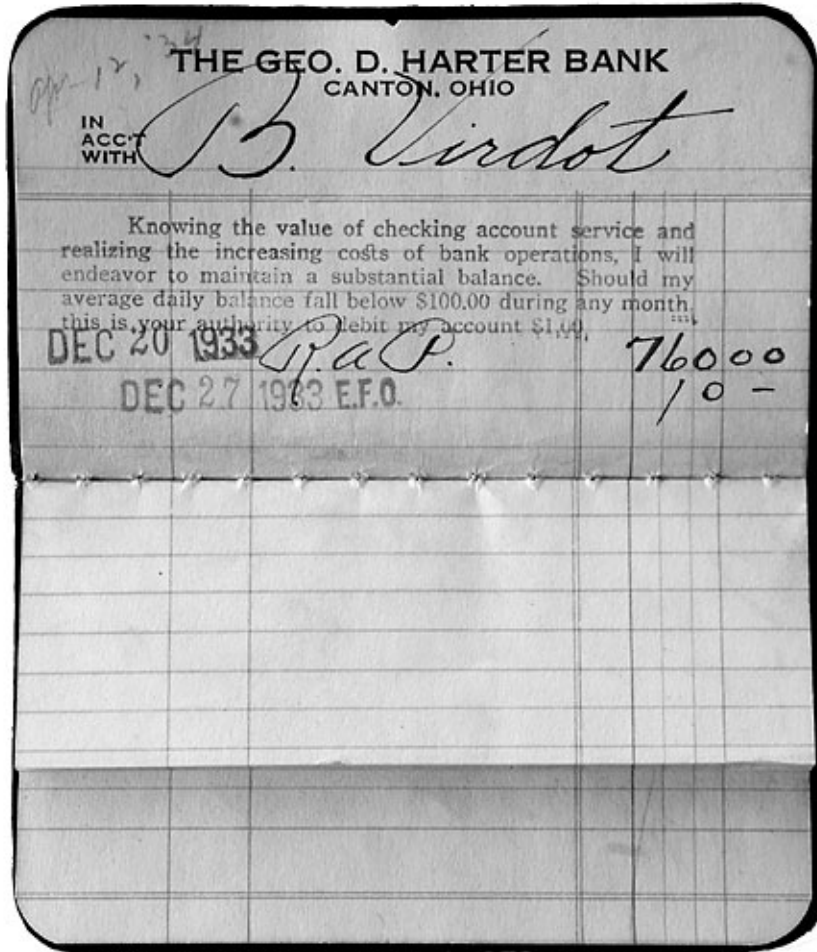 apr 12, '34
THE GEO. D. HARTER BANK
CANTON, OHIO
IN
ACC'T
WITH
B. Virdot
Knowing the value of checking account service and
realizing the increasing costs of bank operations, I will
endeavor to maintain a substantial balance. Should my
average daily balance fall below $100.00 during any month,
this is your authority to debit my account $1.00.
DEC 20 1933 R.a P. 760 00
DEC 27 1933 E.F.O. 10 –